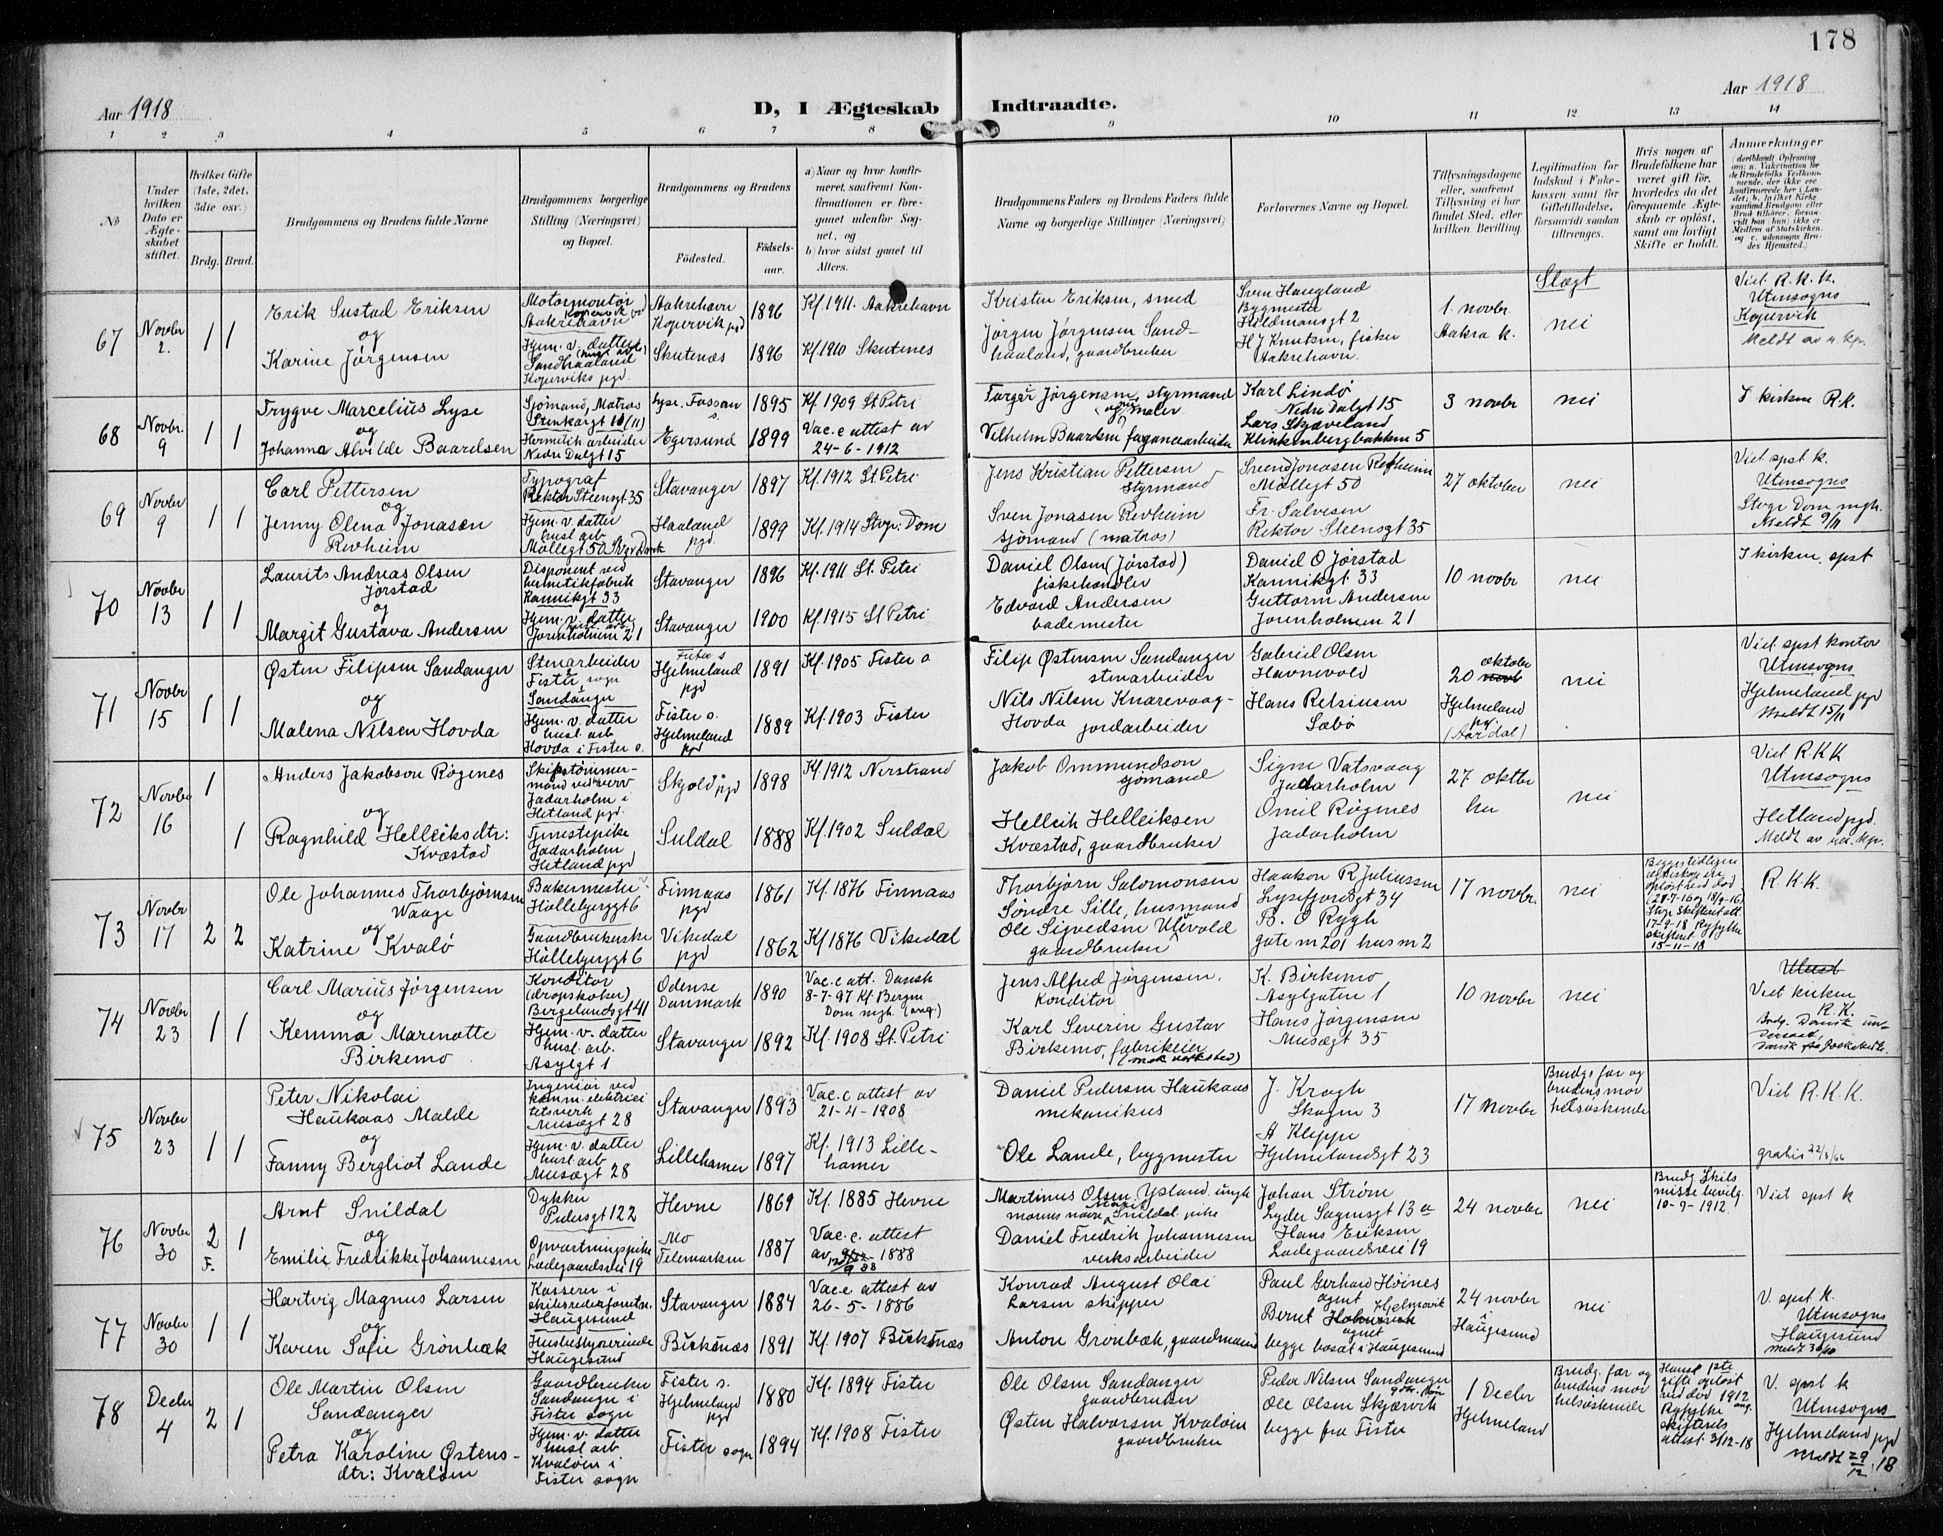 178
Aar 1918
D, I Ægteskab Indtraadte.
Aar 1918
1 2 3 4 5 6 7 8 9 10 11 12 13 14
No
Under hvilken Dato er Ægteskabet stiftet.
Hvilket Gifte (1ste, 2det, 3die osv.)
Brdg. Brud.
Brudgommens og Brudens fulde Navne
Brudgommens borgerlige Stilling (Næringsvei) og Bopæl.
Brudgommens og Brudens
Födested.
Födselsaar.
a) Naar og hvor konfirmeret, saafremt Konfirmationen er foregaaet udenfor Sognet, og
b) hvor sidst gaaet til Alters.
Brudgommens Faders og Brudens Faders fulde Navne og borgerlige Stillinger (Næringsvei)
Forlovernes Navne og Bopæl.
Tillysningsdagene eller, saafremt Tillysning ei har fundet Sted, efter hvilken Bevilling.
Legitimation for Indskud i Enkekassen samt for Giftetilladelse, forsaavidt saadan tiltrænges.
Hvis nogen af Brudefolkene har været gift för, hvorledes da det foregaaende Ægteskab er oplöst, samt om lovligt Skifte er holdt.
Anmærkninger
67
Novbr 2.
1 1
Erik Sustad Eriksen
og
Karine Jørgensen
Motormontør
Aakrehavn
Hjem. v. datter
Sandhaaland
Koperviks pgd.
Aakrehavn
Kopervik pgd
1896
Kf. 1911. Aakrehavn
Skutenæs
1896
Kf. 1910 Skutenes
Kristen Eriksen, smed
Jørgen Jørgensen Sandhaaland, gaardbruker
Sven Haugland
Bygmester
Hildmansgt 2
H J Knutsen, fisker
Aakrehavn.
1 novbr.
Aakra k.
Slægt
nei
Viet R. K. K.
Utensogns
Kopervik
68
Novbr. 9
1 1
Trygve Marcelius Lyse
og
Johanna Alvilde Baardsen
Sjømand, Matros
Stenkargt 10 (11)
Hermetik arbeider
Nedre Dalgt 15
Lyse, Fossan s.
1895
Kf. 1909 St Petri
Egersund
1899
Vac. c attest av
24-6-1912
Jørgensen, styrmand
Vilhelm Baardsen
Karl Lindø
Nedre Dalgt 15
Lars Skjæveland
Klinkenbergbakken 5
3 novbr
nei
I kirken R.K.
69
Novbr 9
1 1
Carl Pettersen
og
Jenny Olena Jonasen
Revheim
Typograf
Rektor Steensgt 35
Hjem. v. datter
husl arb
Møllegt 50
Stavanger
1897
Kf. 1912 St Petri
Haaland pgd.
1899
Kf. 1914 Stvgr. Dom
Jens Kristian Pettersen
styrmand
Sven Jonasen Revheim
sjømand (matros)
Svend Jonasen Revheim
Møllegt 50
Fr. Salvesen
Rektor Steensgt 35
27 oktober
nei
Viet spst k.
Utensogns
Stvgr Dom mgh.
Meldt 9/11
70
Novbr 13
1 1
Laurits Andreas Olsen
Jørstad
og
Margit Gustava Andersen
Disponent ved
hermetikfabrik
Kannikgt 33
Hjem. v. datter
Jorenholmen 21
Stavanger
1896
Kf. 1911 St. Petri
Stavanger
1900
Kf 1915 St Petri
Daniel Olsen (Jørstad)
fiskehandler
Edvard Andersen
bademester
Daniel O Jørstad
Kannikgt 33
Guttorm Andersen
Jorenholmen 21
10 novbr
nei
I kirken, spst
71
Novbr 15
1 1
Østen Filipsen Sandanger
og
Malena Nilsen Hovda
Stenarbeider
Fister sogn
Sandanger
Hjem. v. datter
husl. arb
Hovda i Fister s.
Fister s
Hjelmeland
pgd
1891
Kf. 1905 Fister s
Fister s.
Hjelmeland
pgd
1889
Kf. 1903 Fister
Filip Østensen Sandanger
stenarbeider
Nils Nilsen Knarevaag-
Hovda jordarbeider
Gabriel Olsen
Havnevold
Hans Retsinsen
Sæbø
20 oktober
Hjelmeland
pg.
(Aardal)
nei
Viet spst kontor
Utensogns
Hjelmeland pgd
Meldt 15/11
72
Novbr 16
1 1
Anders Jakobson Røgenes
og
Ragnhild Helleiksdtr:
Kvæstad
Skipstømmermand ved verv
Jadarholm i
Hetland pgd.
Tjenestepike
Jadarholm
Hetland pgd
Skjold pgd
1898
Kf. 1912 Nerstrand
Suldal
1888
Kf. 1902 Suldal
Jakob Ommundson
sjømand
Helleik Helleiksen
Kvæstad, gaardbruker
Signe Vatsvaag
Jadarholm
Omil Røgnes
Jadarholm
27 oktbr
her
nei
Viet R.K.K
Utensogns
Hetland pgd.
73
Novbr 17
2 2
Ole Johannes Thorbjørnsen
Waage
og
Katrine Kvalø
Bakermester
Hollebyrggt 6
Gaardbrukerske
Hollebyrggt 6
Finnaas
pgd
1861
Kf. 1876 Finnaas
Vikedal
pgd
1862
Kf 1876 Vikedal
Thorbjørn Salomonsen
Søndre Sille, husmand
Ole Sigvedsen Ulevold
gaardbruker
Haakon R Juliussen
Lysefjordsgt 34
B. O Rygh
gate no 201 hus no 2
17 novbr.
nei
R.K.K.
74
Novbr 23
1 1
Carl Marius Jørgensen
og
Kemma Marenotte
Birkemo
Konditor
(dropskoker)
Bergelandsgt 41
Hjem. v. datter
husl. arb.
Asylgt 1
Odense
Danmark
1890
Vac. c att. Dansk
8-7-97 Kf. Bergen
Dom mgh. (ang.)
Stavanger
1892
Kf. 1908 St. Petri
Jens Alfred Jørgensen,
Konditor
Karl Severin Gustav
Birkemo, fabrikeier
(mek verksted)
K. Birkemo
Asylgaten 1
Hans Jørgensen
Musægt 35
10 novbr
nei
Viet kirken
R.K.
75
Novbr 23
1 1
Peter Nikolai
Haukaas Malde
og
Fanny Bergliot Lande
Ingeniør ved
komm. elektricitetsverk
Musægt 28
Hjem. v. datter
husl arb
Musægt 28
Stavanger
1893
Vac. c attest av
21-4-1908
Lillehamer
1897
Kf. 1913 Lillehamer
Daniel Pedersen Haukaas
mekanikus
Ole Lande, bygmester
J. Kragh
Skagen 3
A Kleppe
Hjelmelandsgt 23
17 Novbr
Brudgs far og
brudens mor
tilstede
Viet R. K. K.
gratis 22/3/66
76
Novbr 30
2 F. 1
Arnt Snildal
og
Emilie Fredrikke Johannesen
Dykker
Pedersgt 122
Opvartningspike
Ladegaardsvei 19
Hevne
1869
Kf. 1885 Hevne
Mo
Telemarken
1887
Vac. c. attest
av 1888
Martinus Olsen Ysland, ungk
Snildal pike
Daniel Fredrik Johannesen
verksarbeider
Johan Strøm
Lyder Sagensgt 13 a
Hans Eriksen
Ladegaardsvei 19
24 novbr
nei
Brudg. Skilsmisse bevilg.
10-9-1912
Viet spst k
77
Novbr 30
1 1
Hartvig Magnus Larsen
og
Karen Sofie Grønbæk
Kasserer i
skibsrederforretn.
Haugesund
Husbestyrerinde
Haugesund
Stavanger
1884
Vac. c attest av
26-5-1886
Buksnæs
1891
Kf. 1907 Buksnæs
Konrad August Olai
Larsen skipper
Anton Grønbæk, gaardmand
Paul Gerhard Høines
agent
Bernt Hjelmervik
agent
begge bosat i Haugesund
24 novbr
i
Haugesund
nei
V. spst k.
Utensogns
Haugesund
78
Decbr 4
2 1
Ole Martin Olsen
Sandanger
og
Petra Karoline Østensdtr: Kvaløen
Gaardbruker
Sandanger i
Fister sogn
Hjem. v. datter
husl arb
Kvaløen i
Fister sogn
Fister s.
Hjelmeland
pgd
1880
Kf. 1894 Fister
Fister sogn
1894
Kf. 1908 Fister
Ole Olsen Sandanger
gaardbruker
Østen Halvorsen Kvaløen
gaardbruker
Peder Nilsen Sandanger
Ole Olsen Skjærvik
begge fra Fister
1 Decbr
Hjelmeland
Brudg. far og
brudens mor
V. spst k
Utensogns
Hjelmeland pgd
Meldt 29/12 18